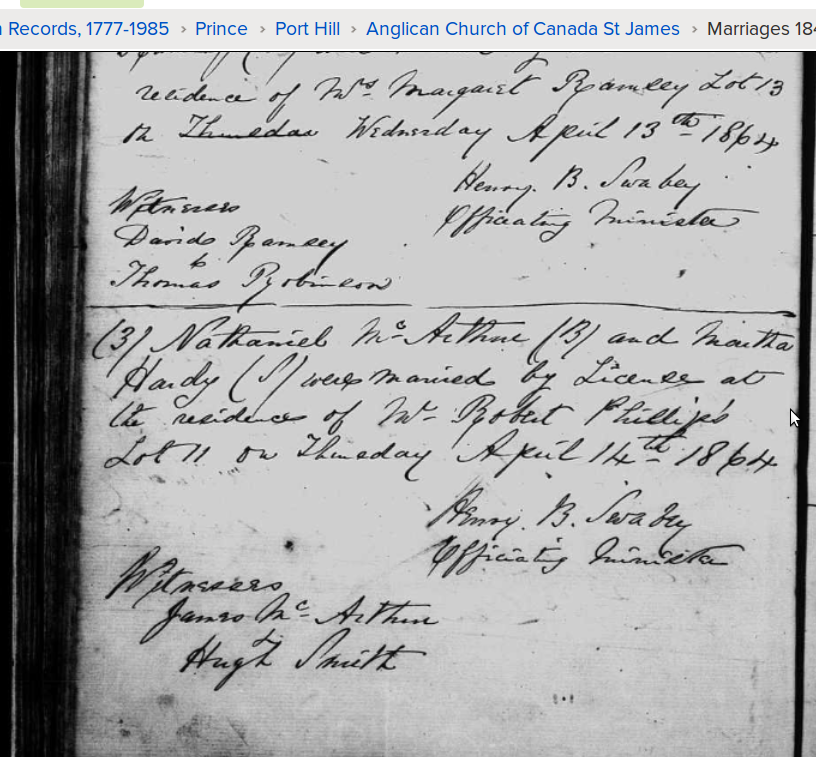 n Records, 1777-1985 › Prince › Port Hill › Anglican Church of Canada St James › Marriages 184
residence of Mrs. Margaret Ramsey Lot 13
on Thursday Wednesday April 13th 1864
Henry. B. Swabey
Officiating Minister
Witnesses
David Ramsey
&
Thomas Robinson
(3) Nathaniel Mc Arthur (B) and Martha
Hardy (S) were married by License at
the residence of Mr Robert Phillips's
Lot 11 on Thursday April 14th 1864
Henry. B. Swabey
Officiating Minister
Witnesses
James Mc Arthur
&
Hugh Smith